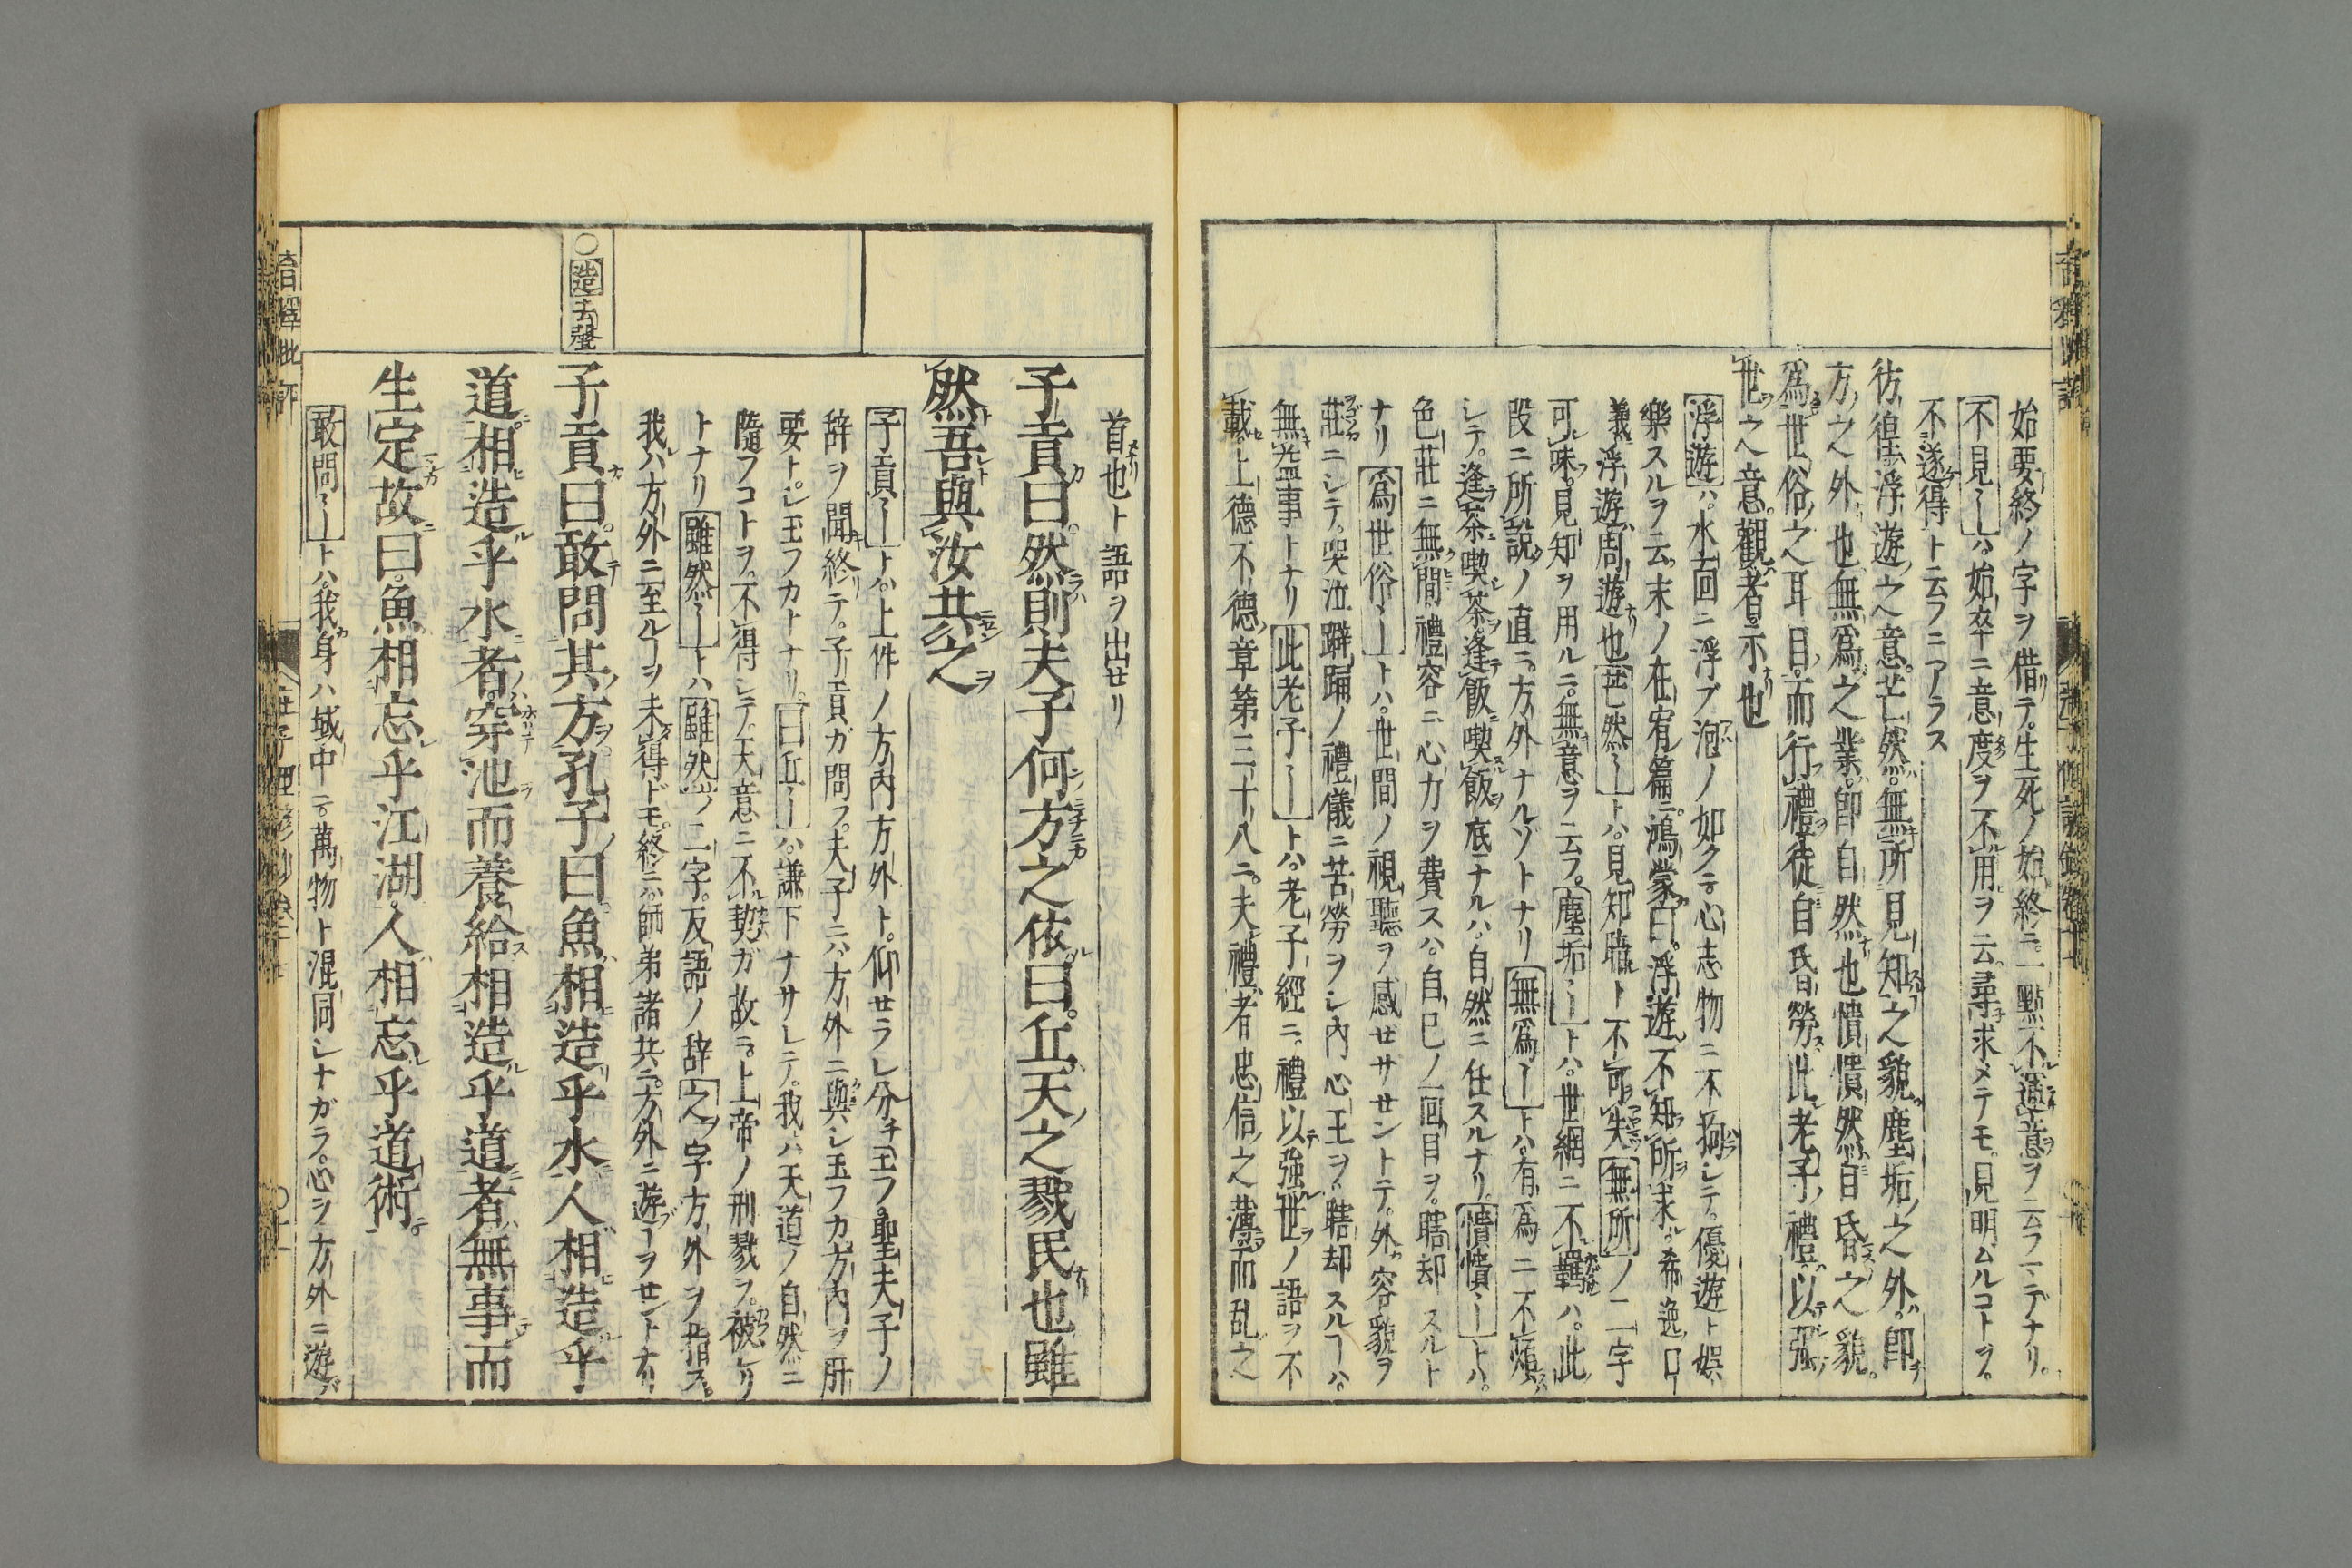 始要終ノ字ヲ借テ。生死ノ始終ニ。一點不適意ヲ云フヿデナリ。
不見〻ーハ。始卒ニ意度ヲ不用ヲ云。尋求メテモ。見明ムルコトヲ。
不遂得ト云フニアラス
彷徨浮遊之意。芒然。無所見知之貌。塵垢之外。即
方之外也。無為之業。即自然也。憒憒然。自昏之貌。
為世俗之耳目。而行禮。徒自昏勞。此老子。禮以強
世之意。觀者。示也
浮遊ハ。水面ニ浮ブ泡ノ如クテ心志物ニ不拘シテ。優遊ト娯
樂スルヲ云。末ノ在宥篇ニ。鴻蒙曰。浮遊不知所求。希逸口
義浮遊周遊也 芒然〻ートハ。見知
可味。見知ヲ用ルニ。無意ヲ云フ。塵垢〻ートハ。世網ニ不羈ハ。此
段ニ所説ノ直ニ。方外ナルゾトナリ 無為〻ートハ。有為ニ不煩
シテ。逢茶喫茶。逢飯喫飯底ナルハ。自然ニ任スルナリ。憒憒〻ートハ。
色莊ニ無間。禮容ニ心力ヲ費スハ。自已ノ面目ヲ。瞎却スルト
ナリ 為世俗〻ートハ。世間ノ視聽ヲ感セサセントテ。外容貌ヲ
莊ニシテ。哭泣躃踊ノ禮儀ニ苦勞ヲシ内心王ヲ瞎却スルヿハ。
無益事トナリ 此老子〻ートハ。老子經ニ。禮以強世ノ語ヲ不
載。上德不德章第三十八ニ。夫禮者忠信之薄而乱之
首也ト語ヲ出セリ
子貢曰。然則夫子何方之依。曰。丘天之戮民也雖
然吾與汝共之
子貢〻ートハ。上件ノ方内方外ト。仰セラレ分チ玉フ。聖夫子ノ
辞ヲ聞終テ。子貢ガ問フ。夫子ニハ。方外ニ與シ玉フカ。方内ヲ肝
要トシ玉フカトナリ。曰丘〻ーハ。謙下ナサレテ。我ハ天道ノ自然ニ
隨フコトヲ。不得シテ。天意ニ不契ガ故ニ。上帝ノ刑戮ヲ。被レリ
トナリ 雖然〻ートハ 雖然ノ二字。反語ノ辞 之字方外ヲ指ス。
我ハ方外ニ至ルヿヲ未得ドモ。終ニハ。師弟諸共ニ。方外ニ遊ヿヲセントナリ。
○造去聲
子貢曰。敢問其方。孔子曰。魚相造乎水。人相造乎
道。相造乎水者。穿池而養給。相造乎道者。無事而
生定。故曰。魚相忘乎江湖。人相忘乎道術。
敢問〻ートハ。我身ハ域中ニテ。萬物ト混同シナガラ。心ヲ方外ニ遊デ